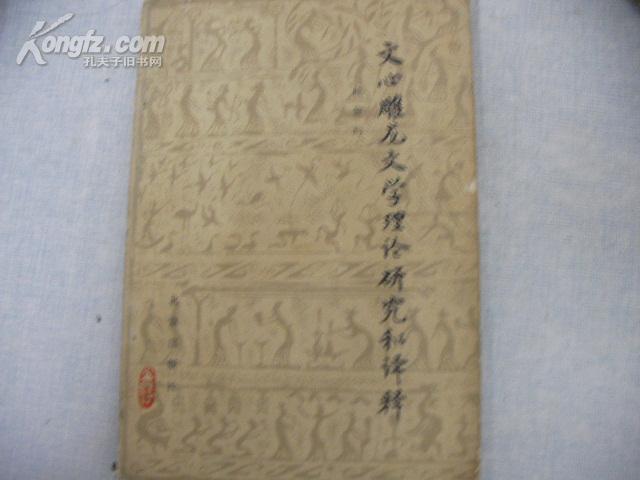 Kongfz.com
孔夫子旧书网
文心雕龙文学理论研究和译释
北京出版社